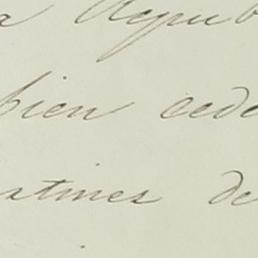 a Repub
bien cede
stines de